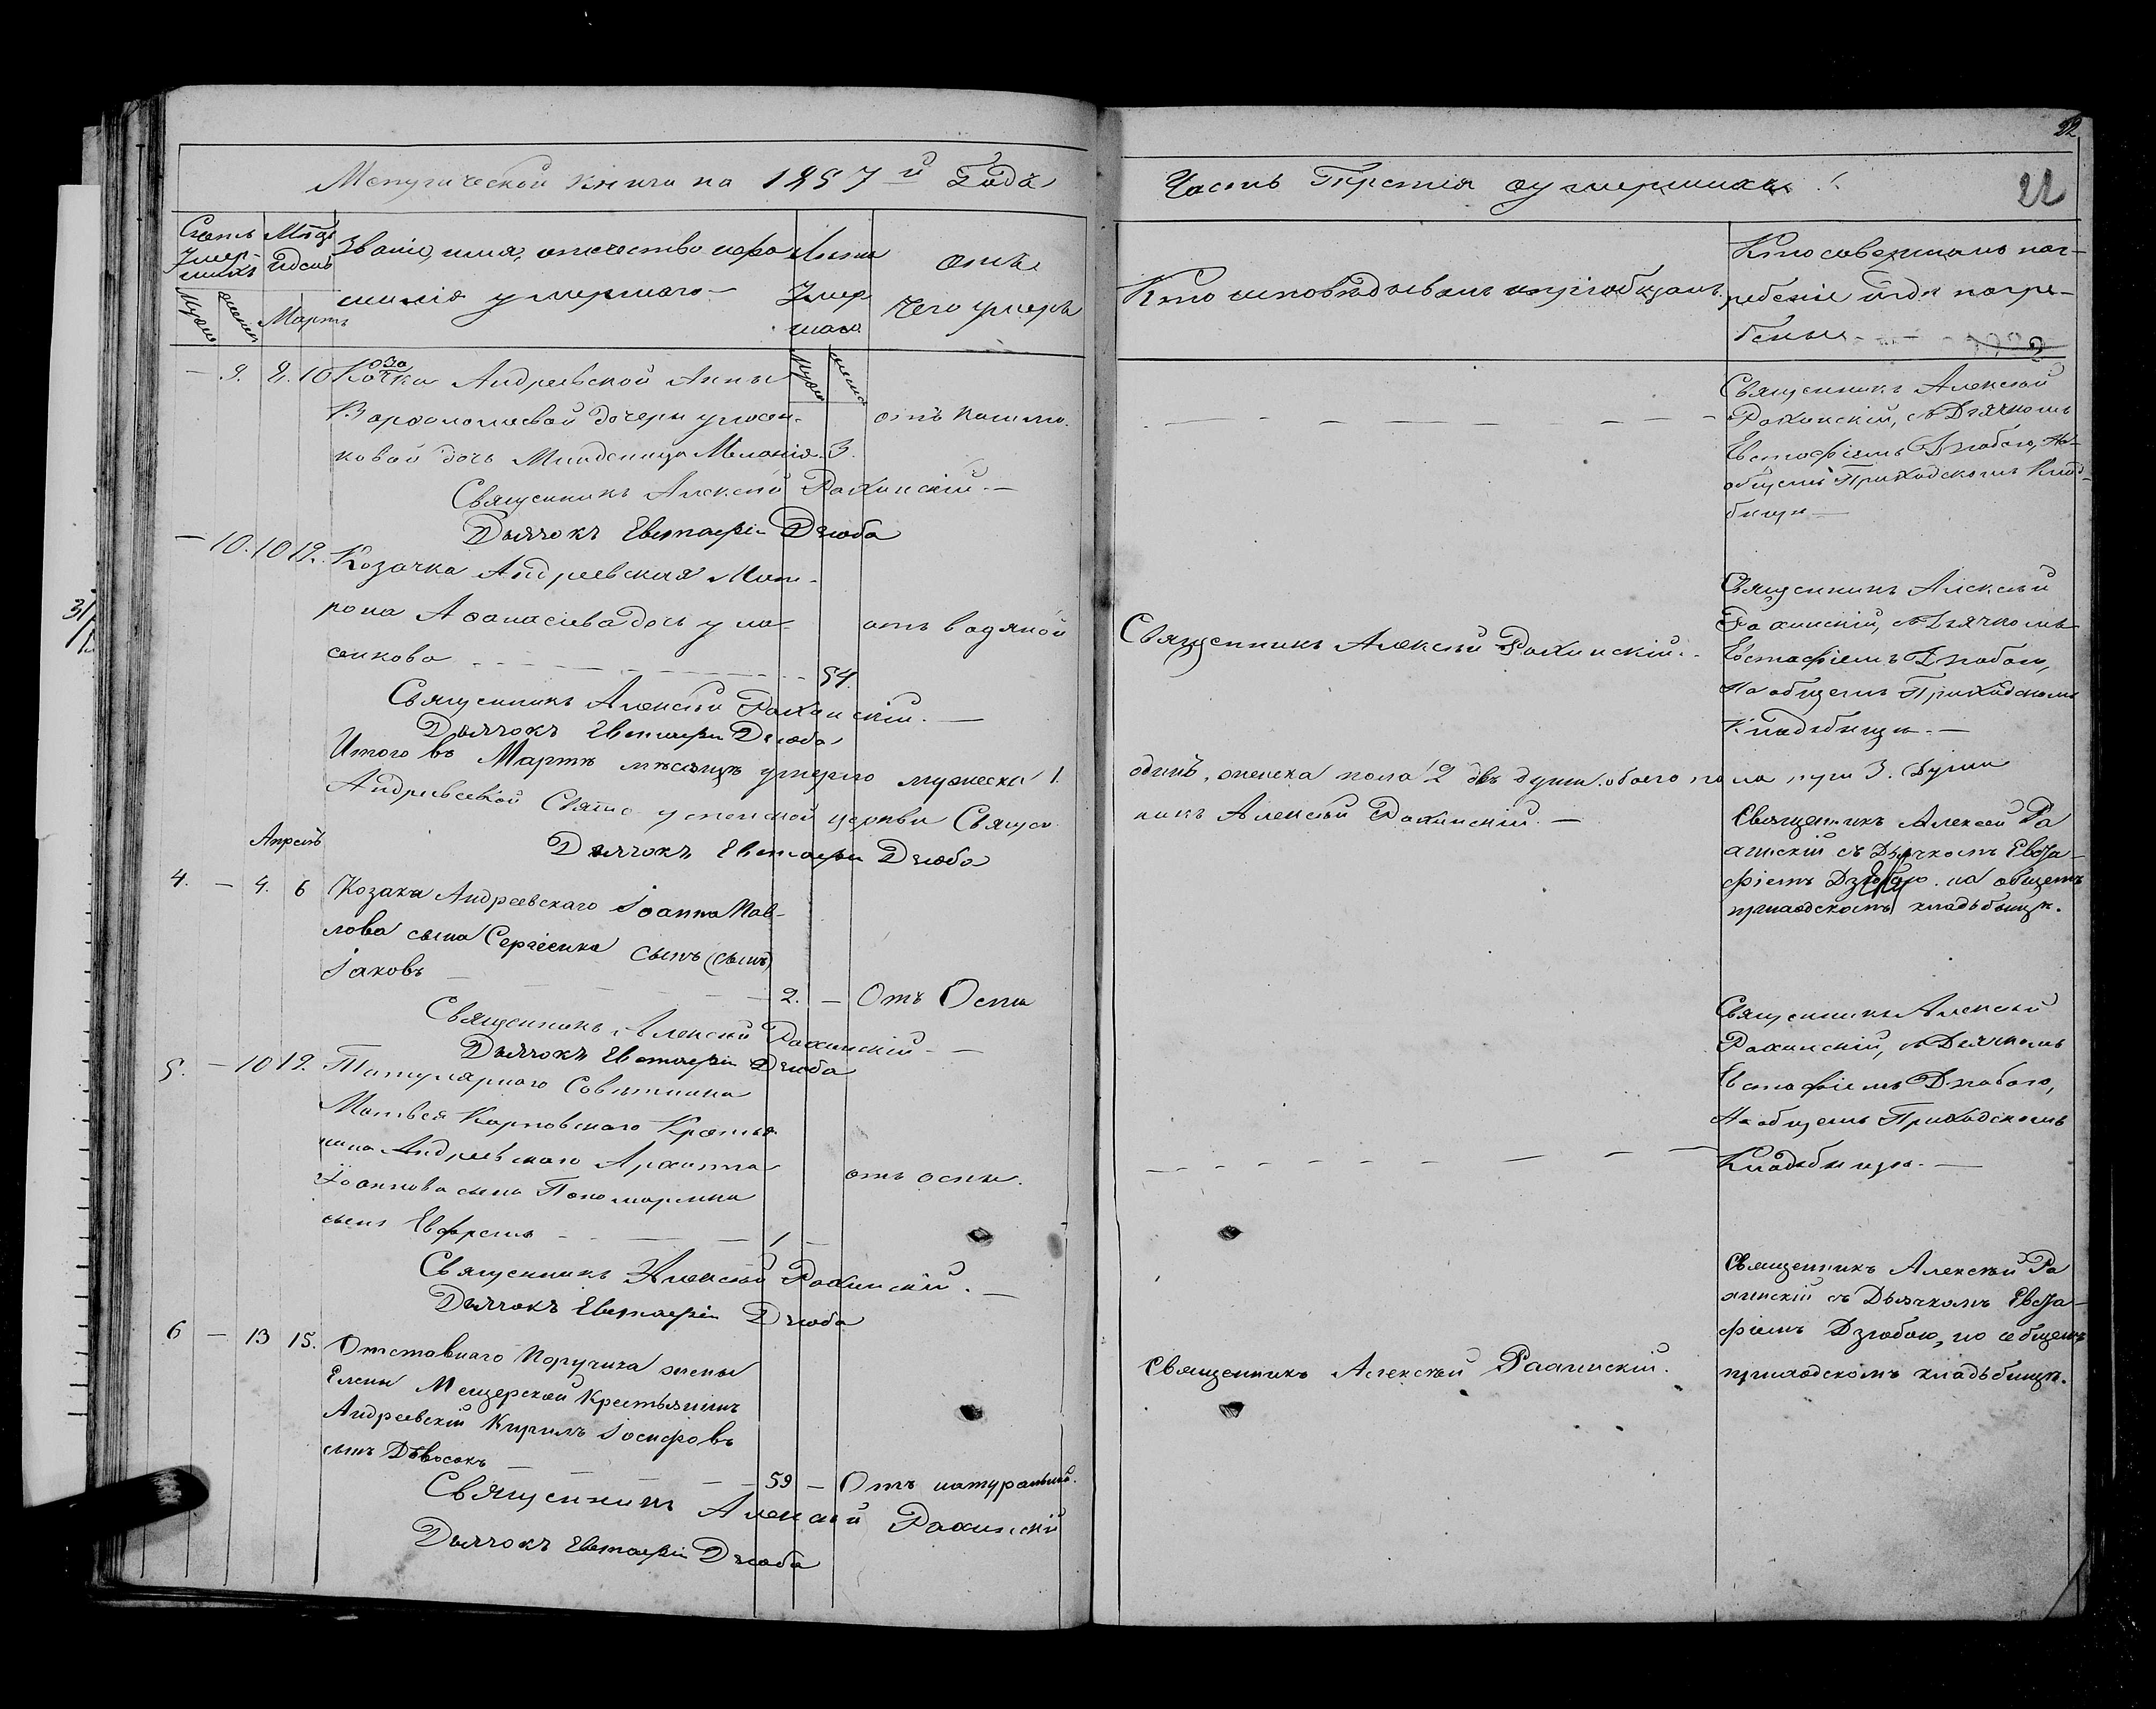 22
Метрической книги на 1857й Года
Часть Третія оумершихъ.
22
Счетъ Умершихъ
Мужс женс
Мѣцъ Идень
Мартъ
Званіе, имя, отчество ифамилія умершаго
Лѣта Умершаго
Мужс женс
Отъ чего умеръ
Кто исповѣдывалъ ипріобщалъ.
Кто совершалъ погребеніе игдѣ погребены
— 9. 8. 10 Козачки Андреевской Анны
Варфоломеевой дочери
ковой дочь Младеница Меланія. 3.
отъ кашлю.
Священникъ Алексѣй Рахинскій. —
Дьячокъ Евстафій Дзюба
Священникъ Алексѣй
Рахинскій, съ Дьячкомъ
Евстафіемъ Дзюбою, На
общемъ Приходскомъ Клад-
бищи —
— 10. 10 12. Козачка Андреевская Мат-
рона Афанасіева дочь
сенкова 54.
отъ водяной
Священникъ Алексѣй Рахинскій. —
Дьячокъ Евстафій Дзюба
Священникъ Алексѣй Рахинскій.
Священникъ Алексѣй
Рахинскій, съ Дьячкомъ
Евстафіемъ Дзюбою,
На общемъ Приходскомъ
Кладьбищи. —
Итого въ Мартѣ мѣсяцѣ умерло мужеска 1. одинъ, женска пола 2 двѣ души. обоего пола три 3. Души
Андреевской Свято успенской церкви Священникъ Алексѣй Рахинскій. —
Дьячокъ Евстафій Дзюба
Апрель
4. — 4. 6 Козака Андреевскаго Іоанна Пав-
лова сына Сергіенка сынъ (сынъ)
Іаковъ — 2. — Отъ Оспы
Священникъ Алексѣй Рахинскій —
Дьячокъ Евстафій Дзюба
Священникъ Алексѣй Ра
хинскій съ Дьячкомъ Евста-
фіемъ Дзюбою. на общемъ
приходскомъ кладьбищѣ.
5. — 10 12. Титулярного Совѣтника
Матвея Карповского Крестья
нина Андреевскаго Архиппа
Іоаннова сына Пономаренка
сынъ Ефремъ — 1 —
отъ оспы.
Священникъ Алексѣй Рахинскій. —
Дьячокъ Евстафій Дзюба
Священникъ Алексѣй
Рахинскій, съ Дьячкомъ
Евстафіемъ Дзюбою,
На общемъ Приходскомъ
Кладьбищи. —
6 — 13 15. Отставнаго Поручика жены
Елены Мещерской Крестьянинъ
Андреевскій Кирилъ Іосифовъ
сынъ — 59 — Отъ натуральной.
Священникъ Алексѣй Рахинскій
Дьячокъ Евстафій Дзюба
Священникъ Алексѣй Рахинскій.
Священникъ Алексѣй Ра
хинскій съ Дьячкомъ Евста-
фіемъ Дзюбою, на общемъ
приходскомъ кладьбищѣ.